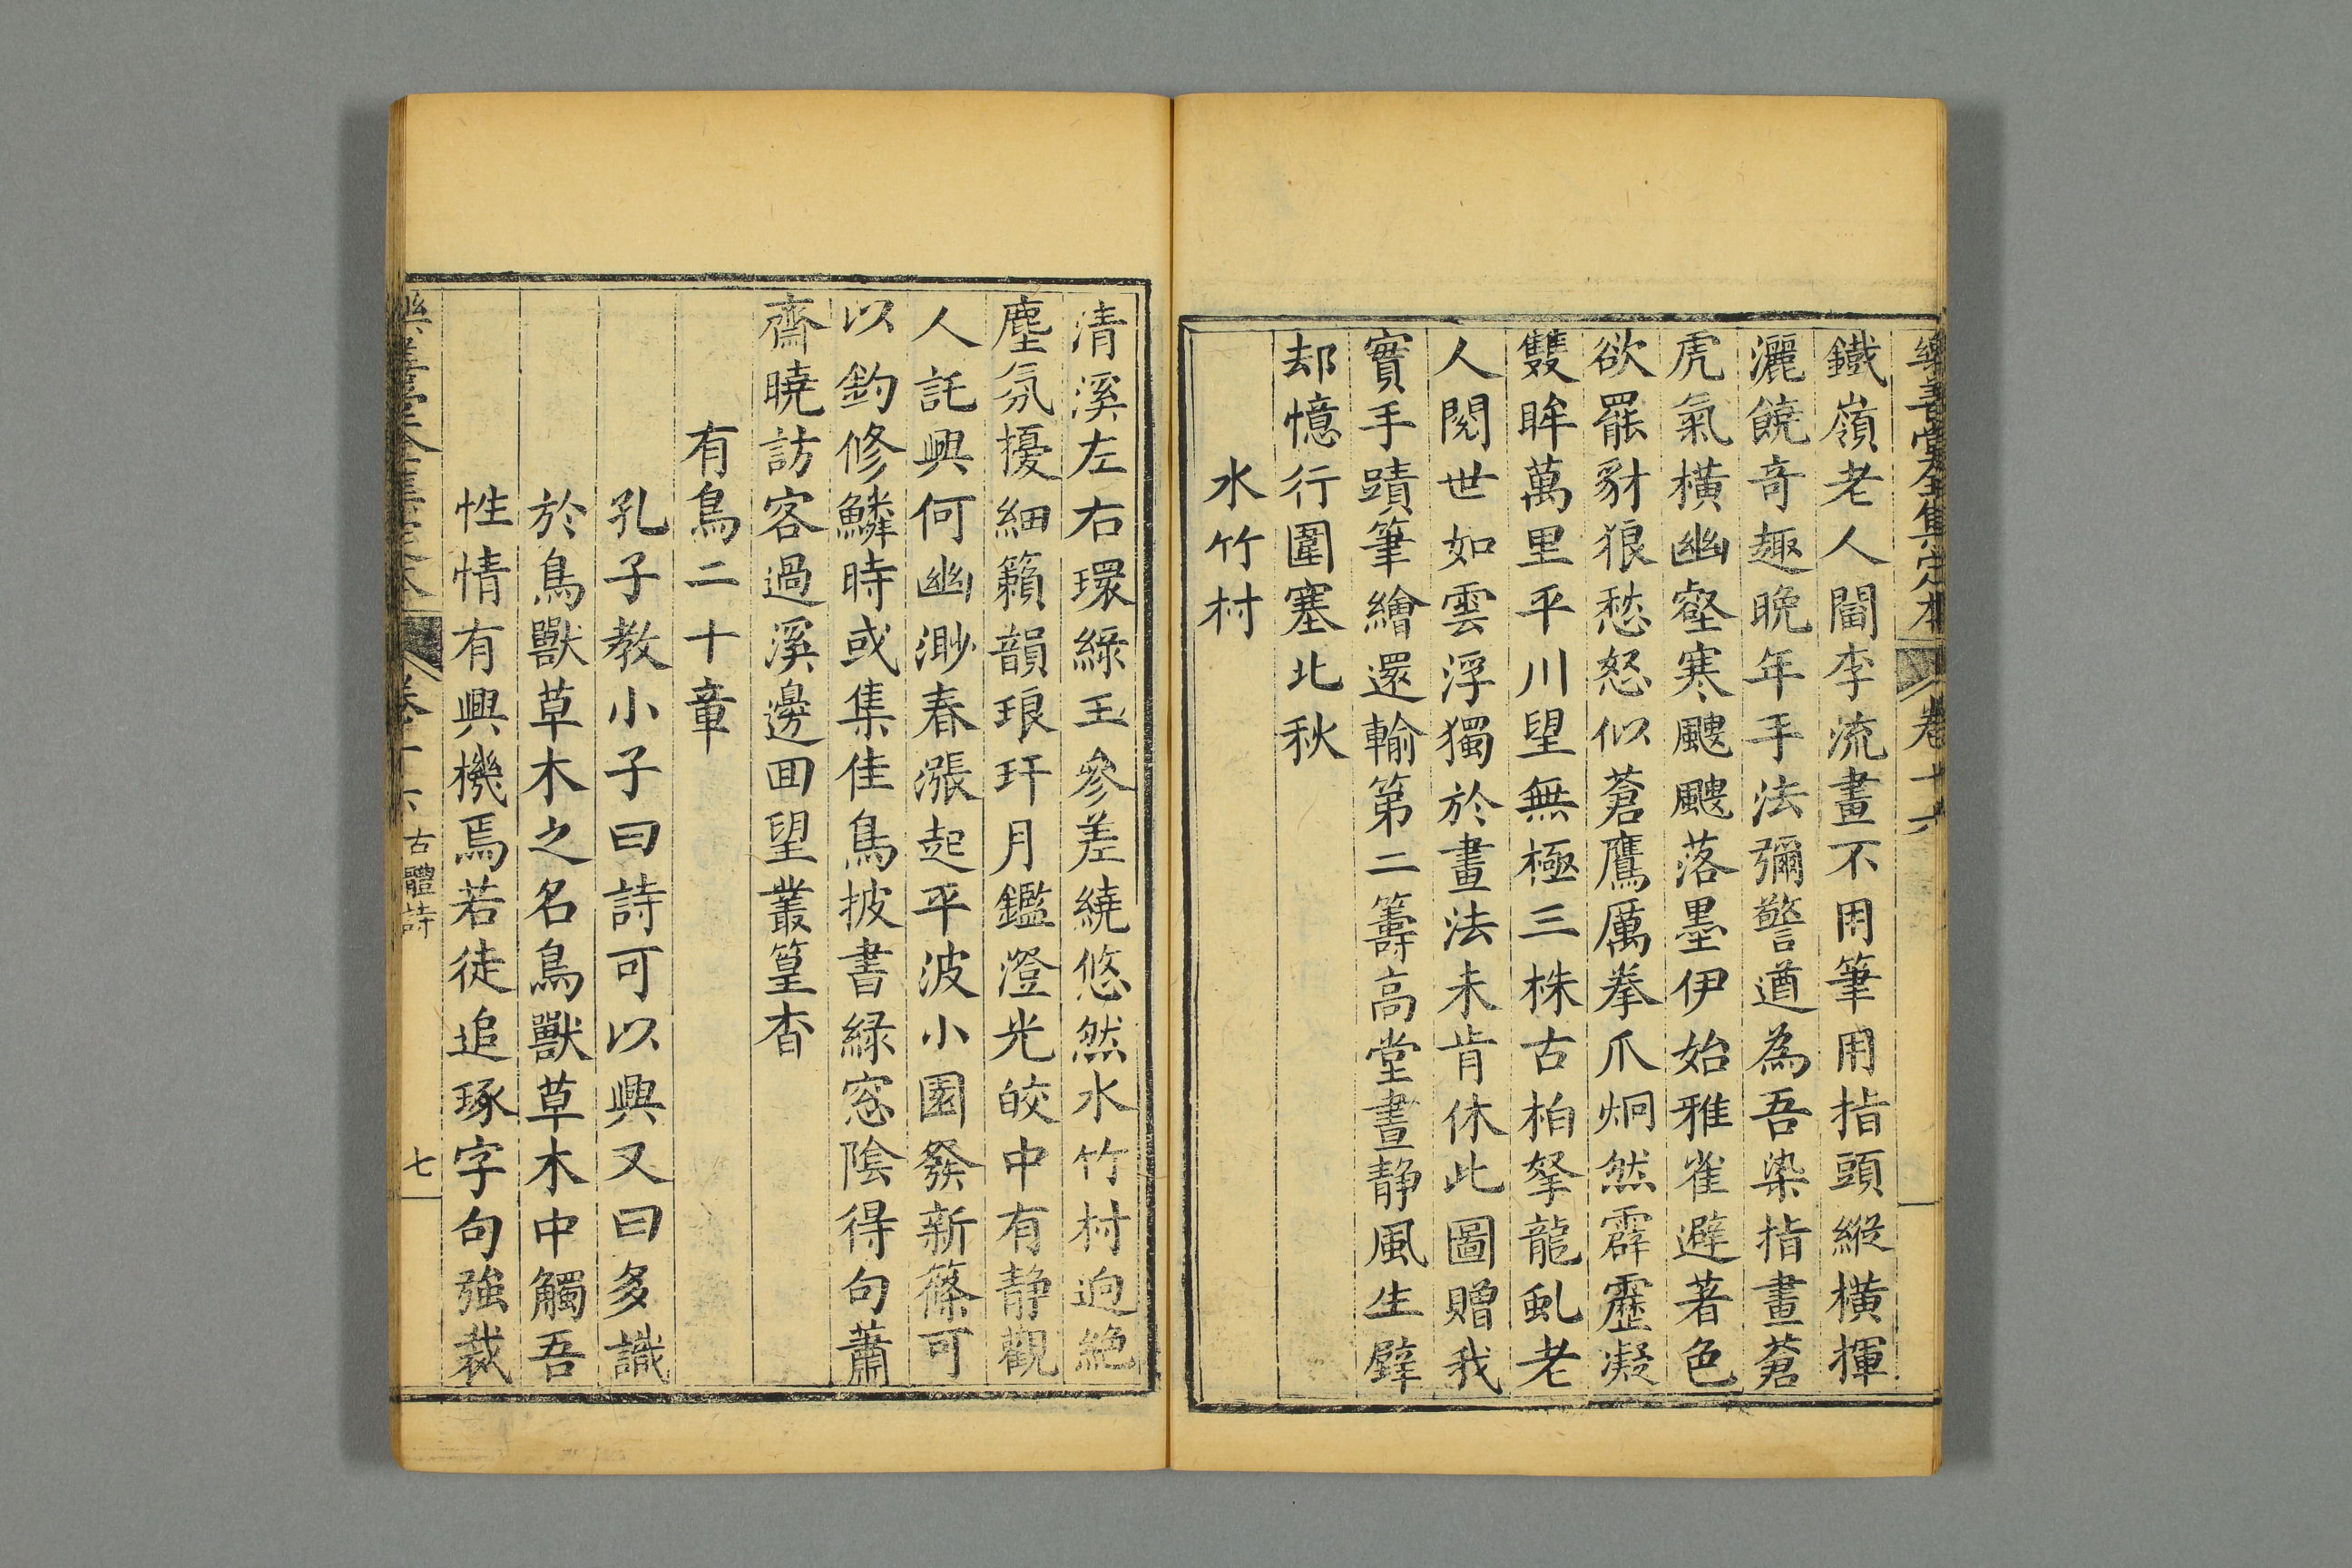 樂善堂全集定本 卷十六
鐵嶺老人閶李流畫不用筆用指頭縱橫揮
灑饒奇趣晚年手法彌警遒為吾染指畫蒼
虎氣橫幽壑寒颼颼落墨伊始雅雀避著色
欲罷豺狼愁怒似蒼鷹厲拳爪炯然霹靂凝
雙眸萬里平川望無極三株古柏拏龍虬老
人閱世如雲浮獨於畫法未肯休此圖贈我
實手蹟筆繪還輸第二籌高堂晝静風生壁
却憶行圍塞北秋
水竹村
清溪左右環綠玉參差繞悠然水竹村逈絶
塵氛擾細籟韻琅玕月鑑澄光皎中有静觀
人託興何幽渺春漲起平波小園發新篠可
以釣修鱗時或集佳鳥披書緑窓陰得句蕭
齋曉訪客過溪邊囬望叢篁杳
有鳥二十章
孔子教小子曰詩可以興又曰多識
於鳥獸草木之名鳥獸草木中觸吾
性情有興機焉若徒追琢字句強裁
樂善堂全集定本 卷十六 古體詩 七